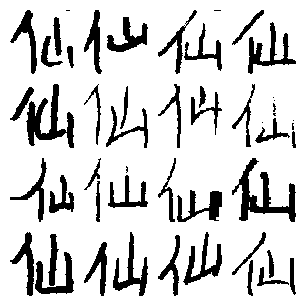 仙仙仙仙
仙仙仙仙
仙仙仙仙
仙仙仙仙